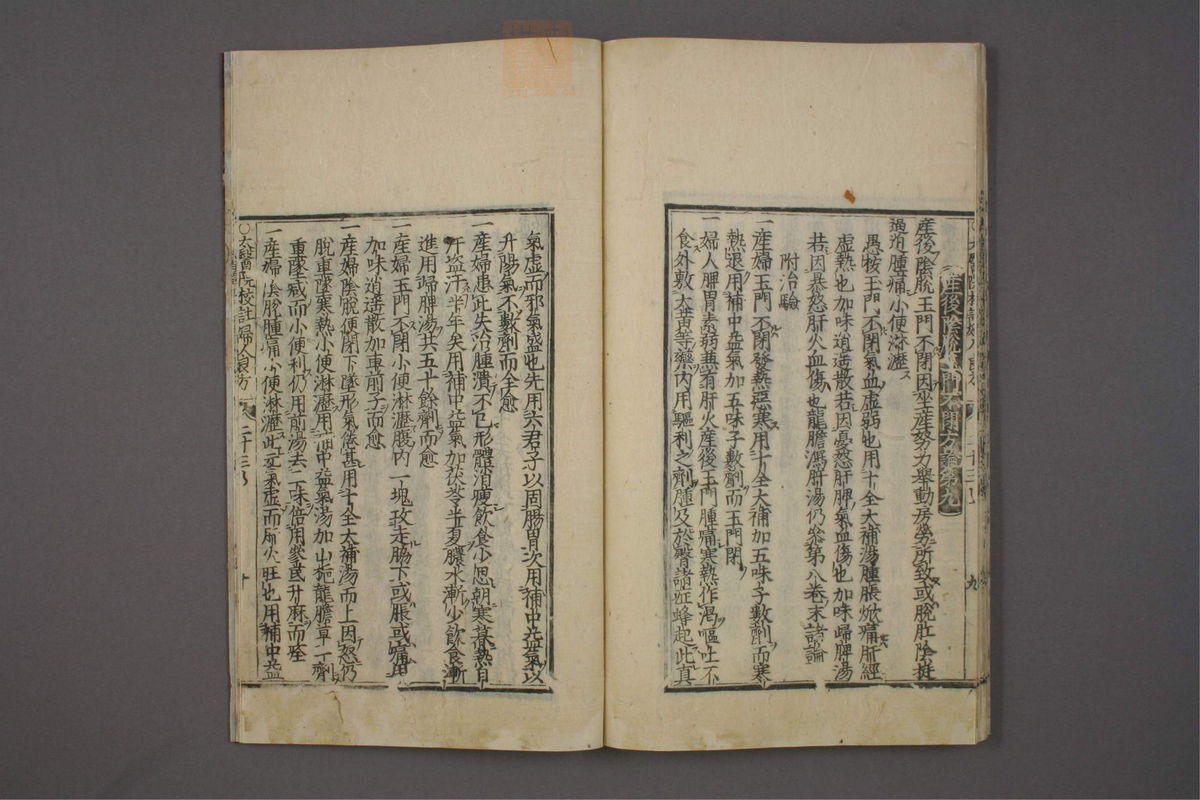 産後陰脫玉門不閉方論第九
産後陰脫玉門不閉因坐産努力舉動房勞所致或脫肛陰挺
過迫腫痛小便淋瀝
愚按玉門不閉氣血虛弱也用十全大補湯腫脹焮痛肝經
虛熱也加味逍遥散若因憂怒肝脾氣血傷也加味歸脾湯
若因暴怒肝火血傷也龍膽瀉肝湯仍參第八卷末諸論
附治驗
一産婦玉門不閉發熱惡寒用十全大補加五味子數劑而寒
熱退用補中益氣加五味子數劑而玉門閉
一婦人脾胃素弱兼有肝火産後玉門腫痛寒熱作渴嘔吐不
食外敷大黃等藥內用驅利之劑腫及於臀諸症蜂起此真
氣虛而邪氣盛也先用六君子以固腸胃次用補中益氣以
升陽氣不數劑而全愈
一産婦患此失治腫潰不已形體消瘦飲食少思朝寒暮熱自
汗盗汗半年矣用補中益氣加茯苓半夏膿水漸少飲食漸
進用歸脾湯共五十餘劑而愈
一産婦玉門不閉小便淋瀝腹內一塊攻走脇下或脹或痛用
加味逍遥散加車前子而愈
一産婦陰脫便閉下墜形氣倦甚用十全大補湯而上因怒仍
脫重墜寒熱小便淋瀝用補中益氣湯加山梔龍膽草一劑
重墜減而小便利仍用前湯去二味倍用參芪升麻而痊
一産婦陰脫腫痛小便淋瀝此元氣虛而肝火旺也用補中益
○太醫院校註婦人良方 二十三 十
九